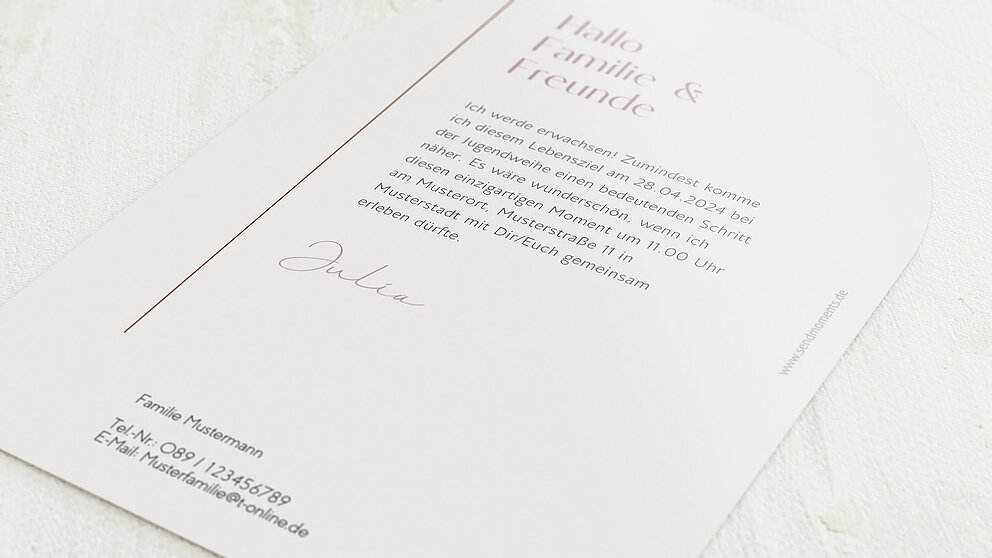 Hallo
Familie &
Freunde
Ich werde erwachsen! Zumindest komme
ich diesem Lebensziel am 28.04.2024 bei
der Jugendweihe einen bedeutenden Schritt
näher. Es wäre wunderschön, wenn ich
diesen einzigartigen Moment um 11.00 Uhr
am Musterort, Musterstraße 11 in
Musterstadt mit Dir/Euch gemeinsam
erleben dürfte.
Julia
www.sendmoments.de
Familie Mustermann
Tel.-Nr.: 089 / 123456789
E-Mail: Musterfamilie@t-online.de